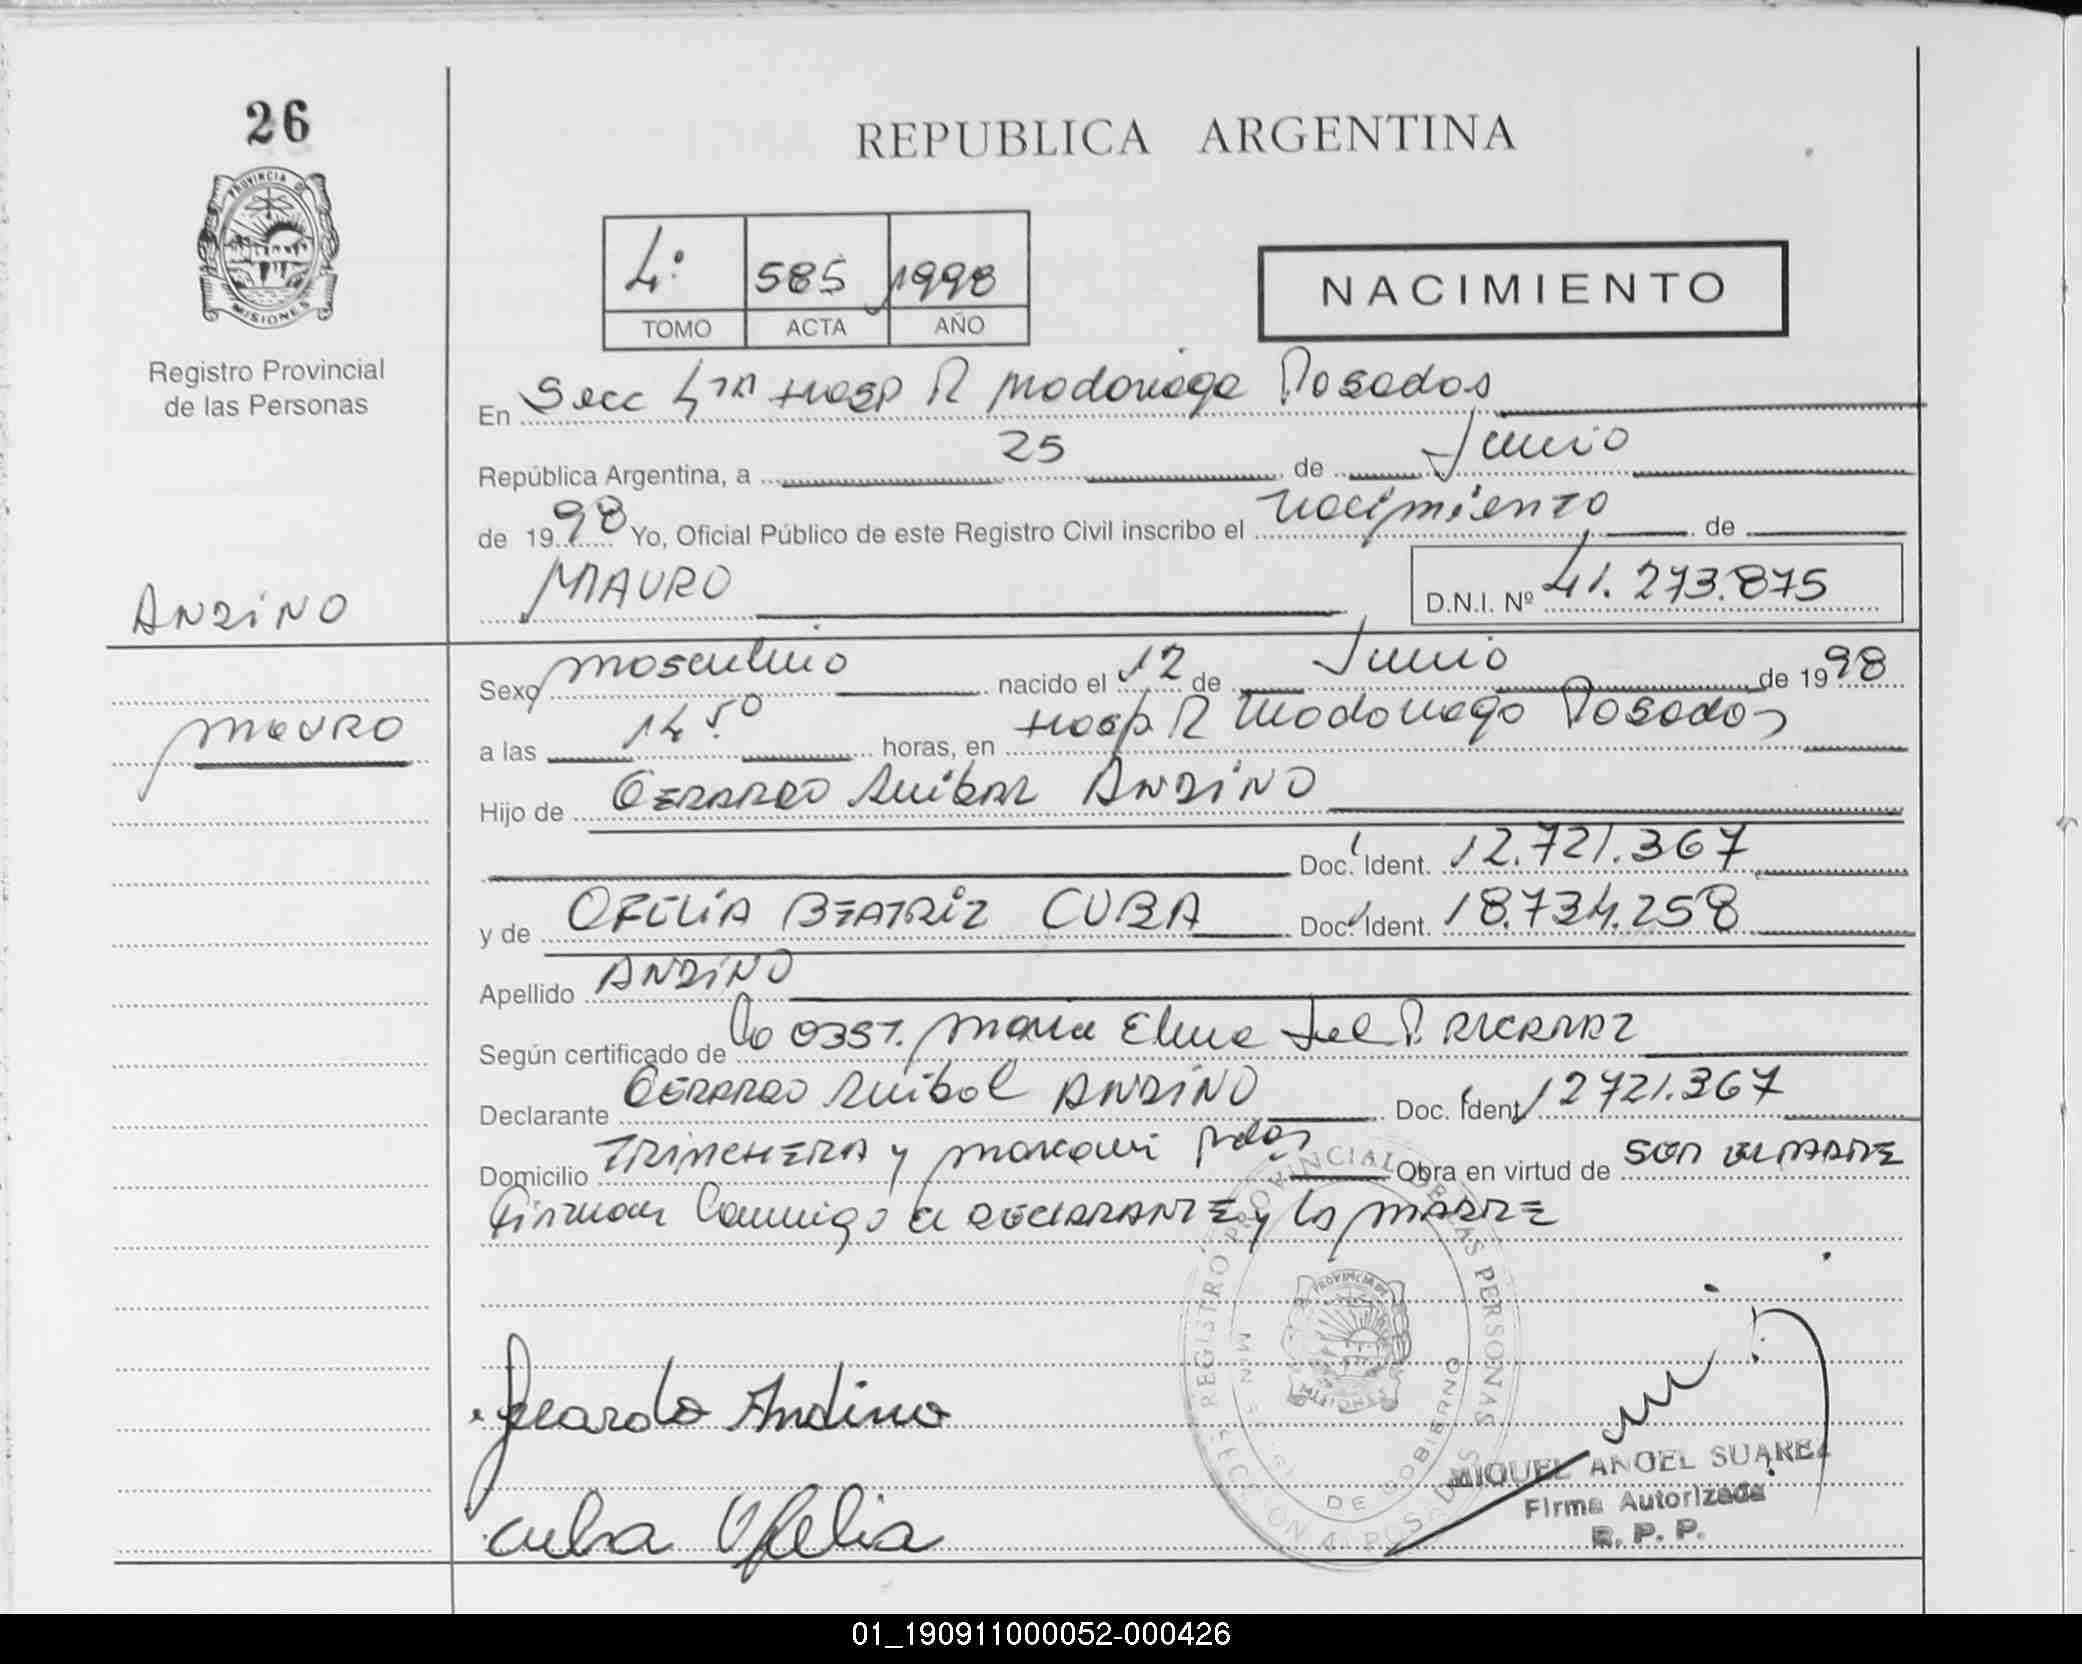 26
REPUBLICA ARGENTINA
PROVINCIA DE
MISIONES
Registro Provincial
de las Personas
4º 585 1998
TOMO ACTA AÑO
NACIMIENTO
En Secc 4ta Hosp R Madariaga Posadas
República Argentina, a 25 de Junio
de 1998 Yo, Oficial Público de este Registro Civil inscribo el nacimiento de
MAURO D.N.I. Nº 41.273.875
ANDINO
MAURO
Sexo masculino nacido el 12 de Junio de 1998
a las 14.50 horas, en Hosp R Madariaga Posadas
Hijo de GERARDO Anibal ANDINO
Doc. Ident. 12.721.367
y de OFELIA BEATRIZ CUBA Doc. Ident. 18.734.258
Apellido ANDINO
Según certificado de la OBST. Maria Elena del P.
Declarante GERARDO Anibal ANDINO Doc. Ident 12721.367
Domicilio TRINCHERA y Pdas Obra en virtud de SER EL PADRE
Firman Conmigo el DECLARANTE y la MADRE
REGISTRO PROVINCIAL DE LAS PERSONAS
MINIS DE GOBIERNO
PROVINCIA DE
MISIONES
SECCION 4 POSADAS
Gerardo Andino
Cuba Ofelia
MIGUEL ANGEL SUAREZ
Firma Autorizada
R. P. P.
01_190911000052-000426